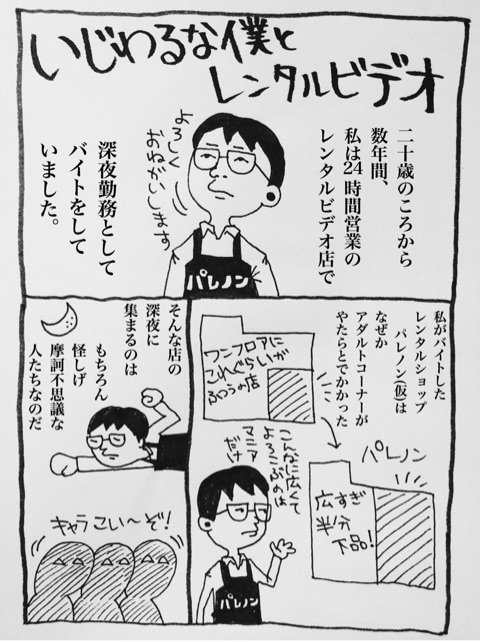 いじわるな僕と
レンタルビデオ
二十歳のころから
数年間、
私は24時間営業の
レンタルビデオ店で
よろしく
おねがいします
深夜勤務として
バイトをして
いました。
パレノン
私がバイトした
レンタルショップ
パレノン(仮)は
なぜか
アダルトコーナーが
やたらとでかかった
ワンフロアに
これぐらいが
ふつうの店
パレノン
広すぎ
半分
下品!
こんなに広くて
よろこぶのは
マニア
だけ
パレノン
そんな店の
深夜に
集まるのは
もちろん
怪しげ
摩訶不思議な
人たちなのだ
キャラこい〜ぞ!